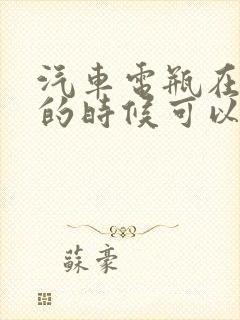 汽車電瓶在
的時候可以
蘇豪